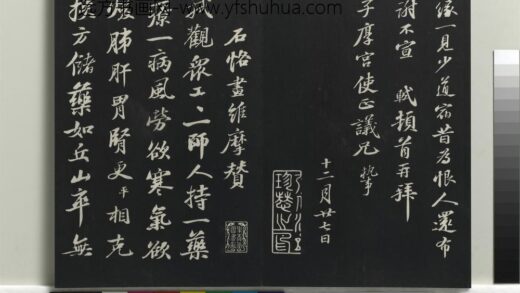 书画网-www.yfshuhua.com
緣一見少道宿昔為恨人還布
謝不宣 軾頓首再拜
子厚宮使正議兄 執事
十二月廿七日
石恪畫維摩贊
我觀衆工二師人持一藥
療一病風勞欲寒氣欲
暖肺肝胃腎更平相克
挾方儲藥如丘山卒無